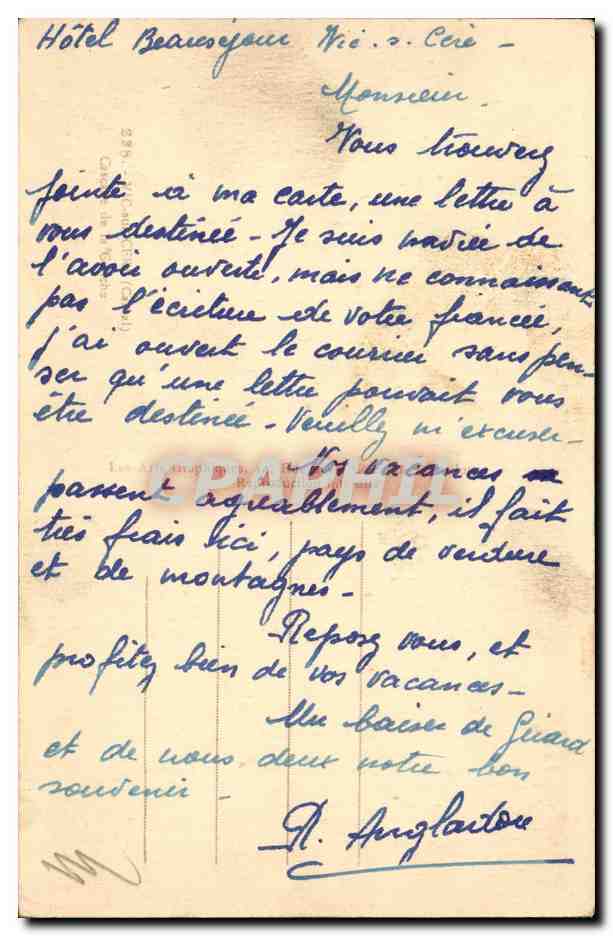 Hôtel Beauséjour Vic. s. Cère -
Monsieur.
Vous trouverez
jointe à ma carte, une lettre à
vous destinée - Je suis navrée de
l'avoir ouverte, mais ne connaissant
pas l'écriture de votre fiancée,
j'ai ouvert le courrier sans pen-
ser qu'une lettre pouvait vous
être destinée - Veuillez m'excuser -
Vos vacances
passent agréablement, il fait
très frais ici, pays de verdure
et de montagnes -
Reposez vous, et
profitez bien de vos vacances -
Un baiser de Gérard
et de nous deux notre bon
souvenir -
236. - VIC-sur-CERE (Cantal)
Cascade de la
Les Arts Graphiques
Reproduction interdite
CPAPHIL